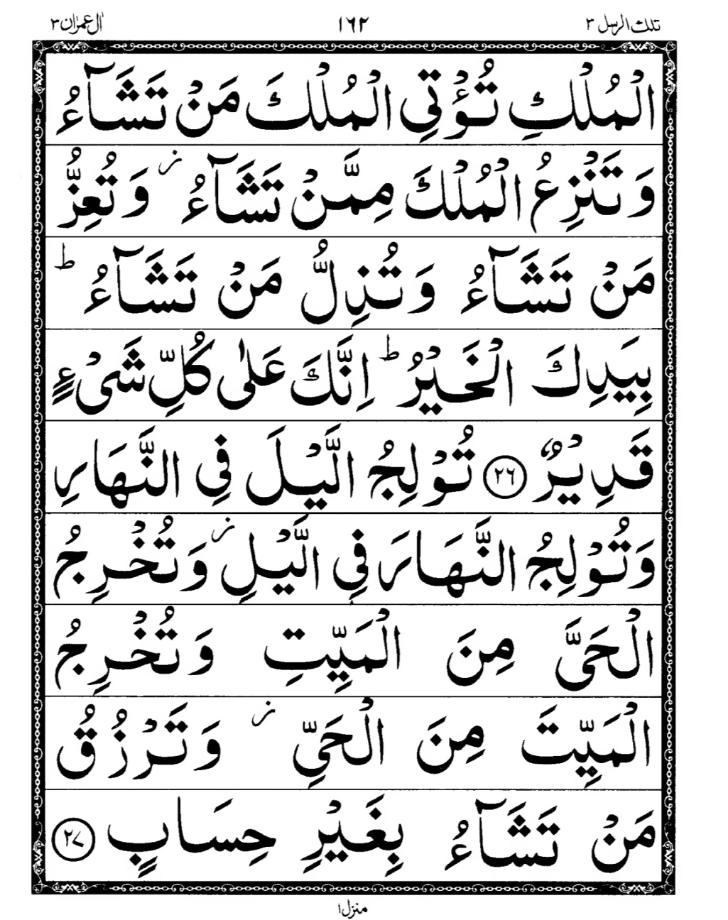 تلك الرسل ٣ ١٦٢ اٰل عمرٰن ٣
الْمُلْكِ تُؤْتِی الْمُلْكَ مَنْ تَشَآءُ
وَ تَنْزِعُ الْمُلْكَ مِمَّنْ تَشَآءُ ؗ وَ تُعِزُّ
مَنْ تَشَآءُ وَ تُذِلُّ مَنْ تَشَآءُ ؕ
بِیَدِكَ الْخَیْرُ ؕ اِنَّكَ عَلٰی كُلِّ شَیْءٍ
قَدِیْرٌ ﴿٢٦﴾ تُوْلِجُ الَّیْلَ فِی النَّهَارِ
وَ تُوْلِجُ النَّهَارَ فِی الَّیْلِ ؗ وَ تُخْرِجُ
الْحَیَّ مِنَ الْمَیِّتِ وَ تُخْرِجُ
الْمَیِّتَ مِنَ الْحَیِّ ؗ وَ تَرْزُقُ
مَنْ تَشَآءُ بِغَیْرِ حِسَابٍ ﴿٢٧﴾
منزل ١